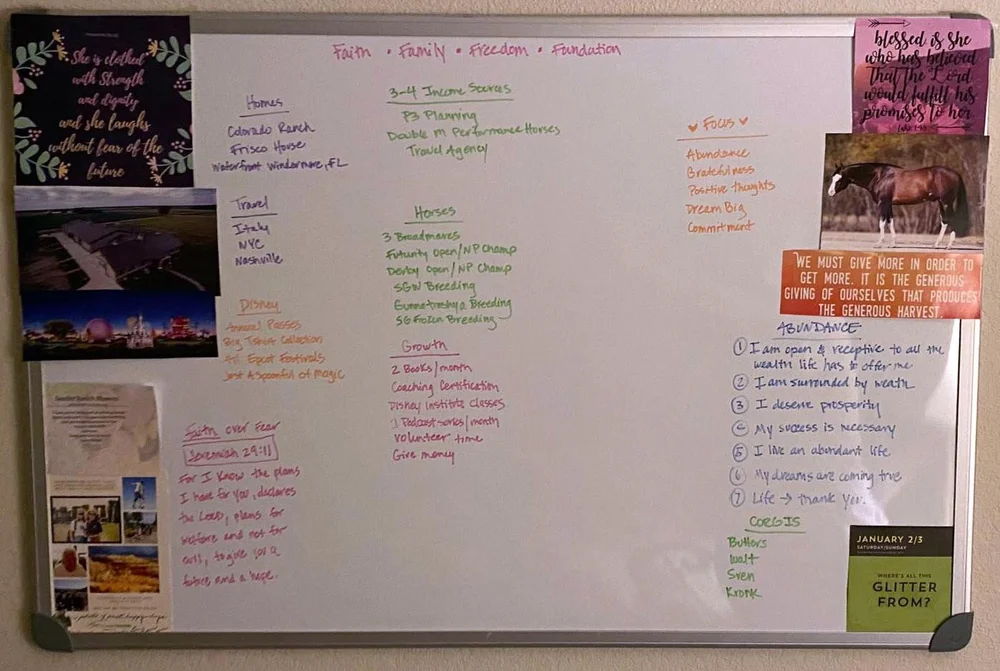 Faith • Family • Freedom • Fundation
She is clothed
with Strength
and dignity
and she laughs
without fear of the
future
Homes
Colorado Ranch
Frisco House
Waterfront Windermere, FL
Travel
Italy
NYC
Nashville
Disney
Annual Passes
Big Tshirt Collection
All Epcot Festivals
Just A Spoonful of Magic
Faith over Fear
Jeremiah 29:11
For I know the plans
I have for you, declares
the Lord, plans for
welfare and not for
evil, to give you a
future and a hope.
3-4 Income Sources
P3 Planning
Double M Performance Horses
Travel Agency
Horses
3 Broodmares
Futurity Open/NP Champ
Derby Open/NP Champ
SGW Breeding
Breeding
SG Frozen Breeding
Growth
2 Books/month
Coaching Certification
Disney Institute Classes
1 Podcast series/month
Volunteer time
Give money
♥ Focus ♥
Abundance
Gratefulness
Positive thoughts
Dream Big
Commitment
blessed is she
who has believed
That the Lord
would fulfill his
promises to her
"WE MUST GIVE MORE IN ORDER TO
GET MORE. IT IS THE GENEROUS
GIVING OF OURSELVES THAT PRODUCES
THE GENEROUS HARVEST.
ABUNDANCE
1 I am open & receptive to all the
wealth life has to offer me
2 I am surrounded by weath
3 I deserve prosperity
4 My success is necessary
5 I live an abundant life
6 My dreams are coming true
7 Life → thank you.
CORGIS
Butters
Walt
Sven
Kronk
JANUARY 2/3
SATURDAY/SUNDAY
WHERE'S ALL THIS
GLITTER
FROM?